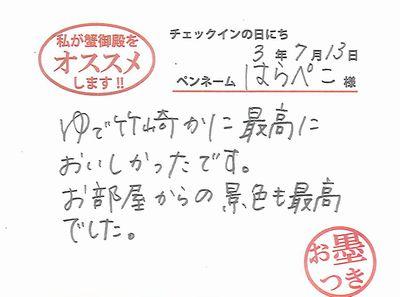 私が蟹御殿を
オススメ
します!!
チェックインの日にち
3年7月13日
ペンネーム はらぺこ 様
ゆで竹崎かに最高に
おいしかったです。
お部屋からの景色も最高
でした。
お墨
つき